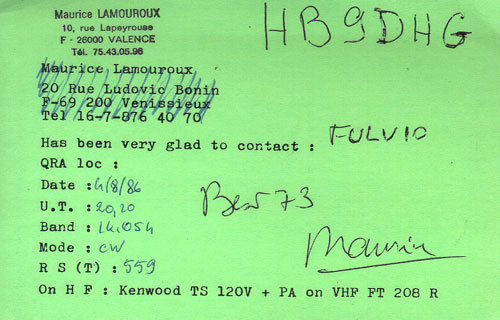 Maurice LAMOUROUX
10, rue Lapeyrouse
F - 26000 VALENCE
Tél. 75.43.05.96
HB9DHG
Maurice Lamouroux
20 Rue Ludovic Bonin
F-69 200 Venissieux
Tel 16-7-876 40 70
Has been very glad to contact : FULVIO
QRA loc :
Date : 4/8/86
U.T. : 20,20
Best 73
Band : 14.054
Mode : CW
Maurice
R S (T) : 559
On H F : Kenwood TS 120V + PA on VHF FT 208 R